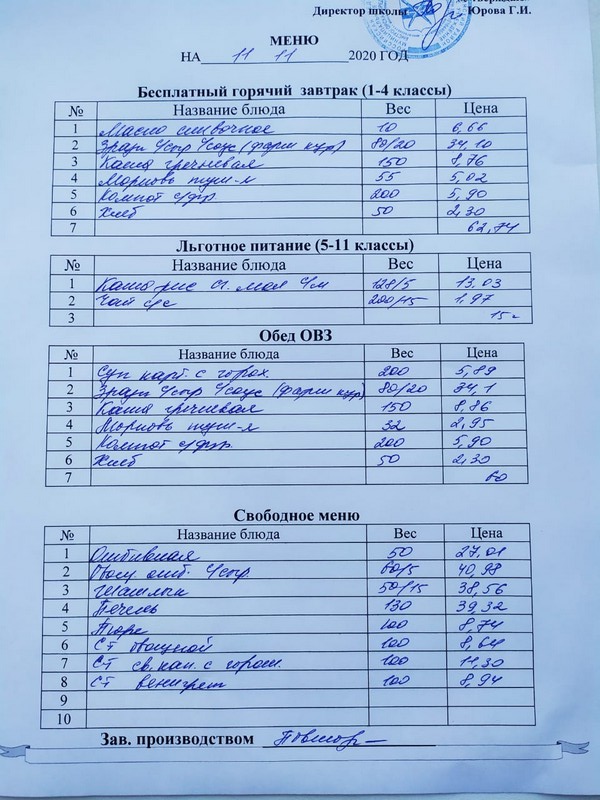 Директор школы Юрова Г.И.
МЕНЮ
НА 11 11 2020 ГОД
Бесплатный горячий завтрак (1-4 классы)
№ Название блюда Вес Цена
1 Масло сливочное 10 6,66
2 Зразы с/сыр с/соус (фарш кур) 80/20 34,10
3 Каша гречневая 150 8,76
4 Морковь туш-я 55 5,02
5 Компот с/фр. 200 5,90
6 Хлеб 50 2,30
7 62,74
Льготное питание (5-11 классы)
№ Название блюда Вес Цена
1 Каша рис 128/5 13,03
2 Чай с/с 200/15 1,97
3 15
Обед ОВЗ
№ Название блюда Вес Цена
1 Суп карт. с горох. 200 5,89
2 Зразы с/сыр с/соус (фарш кур) 80/20 34,1
3 Каша гречневая 150 8,86
4 Морковь туш-я 32 2,95
5 Компот с/фр. 200 5,90
6 Хлеб 50 2,30
7 60
Свободное меню
№ Название блюда Вес Цена
1 Отбивная 50 27,01
2 отб. с/сыр. 60/5 40,98
3 Шашлык 50/15 38,56
4 Печень 130 39,32
5 Пюре 100 8,74
6 СТ овощной 100 8,64
7 СТ св. кап. с горош. 100 11,30
8 СТ винегрет 100 8,94
9
10
Зав. производством